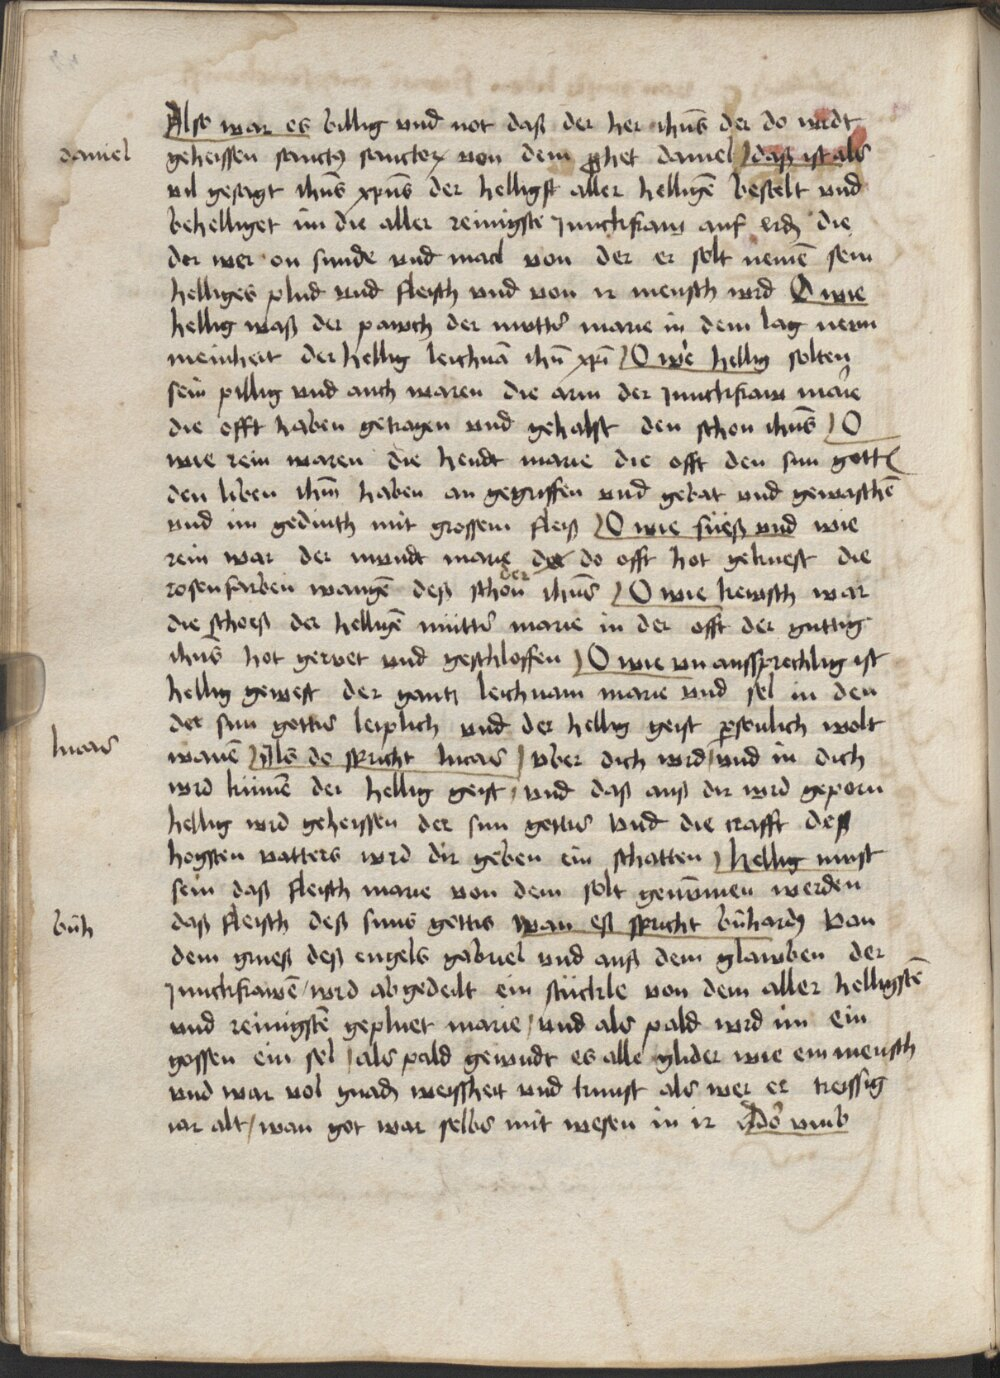 Also war es billig vnd not daß der her ihūs der do wirdt
daniel
geheissen sanctꝰ sanctoꝝ von dem ꝓhet daniel / daß ist als
vil gesagt ihūs xpūs der helligst aller helligē bestelt vnd
behelliget im die aller reinigste junckfraw auf erdꝫ die
der wer on sunde vnd mael von der er solt nemē sein
helliges plud vnd fleisch vnd von ir mensch wird O wie
hellig waß der pawch der mutter marie in dem lag neun
meinheit der hellig leichnā ihū xpī / O wie hellig solten
sein pillig vnd auch waren die arm der junckfraw marie
die offt haben getragen vnd gehalst den schon ihūs / O
wie rein waren die hendt marie die offt den sun gottꝭ
den liben ihm̄ haben an gegriffen vnd gebat vnd gewaschē
vnd im gedinth mit grossem fleiß / O wie süeß vnd wie
rein war der mundt marie der do offt hot gekuest die
rosenfarben wangē deß schon ihūs / O wie kewsch war
die schoeß der helligē mütter marie in der offt der guttig
ihūs hot gerwet vnd geschloffen / O wie vn aussprechlig ist
hellig gewest der gantz leichnam marie vnd sel in den
der sun gottes leiplich vnd der hellig geist ꝑsenlich wolt
lucas
wanē / Als do spricht lucas / vber dich wird / vnd in dich
wird kümē der hellig geist / vnd daß auß dir wird geporn
hellig wird geheissen der sun gottes Vnd die crafft deß
hogsten vatters wird dir geben ein schatten / hellig must
sein daß fleisch marie von dem solt genūmen werden
būh
daß fleisch deß suns gottes wan eß spricht būhardꝰ Von
dem grueß deß engels gabriel vnd auß dem glawben der
junckfrawē / wird abgedeilt ein stückle von dem aller helligstē
vnd reinigstē gepluet marie / vnd als pald wird im ein
gossen ein sel / als pald gewindt es alle glider wie ein mensch
vnd war vol gnadꝫ weissheit vnd kunst als wer er treissig
iar alt / wan got war selbs mit wesen in ir Do vmb